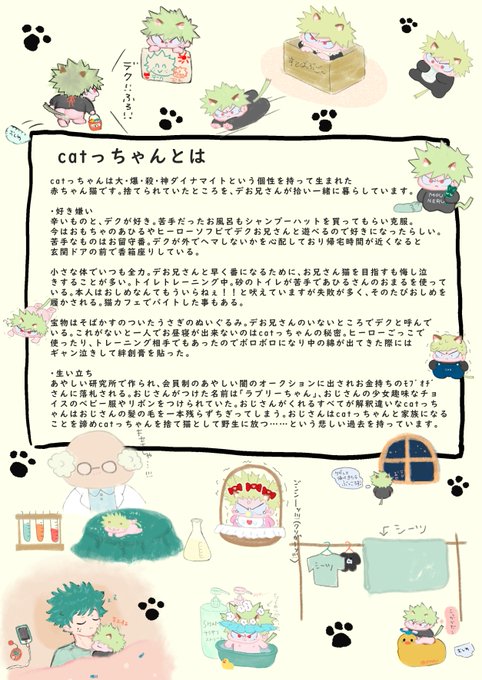 デク!ぶる!!
catっちゃんとは
catっちゃんは大・爆・殺・神ダイナマイトという個性を持って生まれた
赤ちゃん猫です。捨てられていたところを、デお兄さんが拾い一緒に暮らしています。
・好き嫌い
辛いものと、デクが好き。苦手だったお風呂もシャンプーハットを買ってもらい克服。
今はおもちゃのあひるやヒーローソフビでデクお兄さんと遊べるので好きになったらしい。
苦手なものはお留守番。デクが外でヘマしないかを心配しており帰宅時間が近くなると
玄関ドアの前で香箱座りしている。
小さな体でいつも全力。デお兄さんと早く番になるために、お兄さん猫を目指すも悔し泣
きすることが多い。トイレトレーニング中。砂のトイレが苦手であひるさんのおまるを使って
いる。本人はおしめなんてもういらねぇ!!と吠えていますが失敗が多く、そのたびおしめを
履かされる。猫カフェでバイトした事もある。
宝物はそばかすのついたうさぎのぬいぐるみ。デお兄さんのいないところでデクと呼んで
いる。これがないと一人でお昼寝が出来ないのはcatっちゃんの秘密。ヒーローごっこで
使ったり、トレーニング相手でもあったのでボロボロになり中の綿が出てきた際には
ギャン泣きして絆創膏を貼った。
・生い立ち
あやしい研究所で作られ、会員制のあやしい闇のオークションに出されお金持ちのモブオヂ
さんに落札される。おじさんがつけた名前は「ラブリーちゃん」、おじさんの少女趣味なチョ
イスのベビー服やリボンをつけられていた。おじさんがくれるすべてが解釈違いなcatっち
ゃんはおじさんの髪の毛を一本残らずちぎってしまう。おじさんはcatっちゃんと家族になる
ことを諦めcatっちゃんを捨て猫として野生に放つ……という悲しい過去を持っています。
シーツ
シーツ